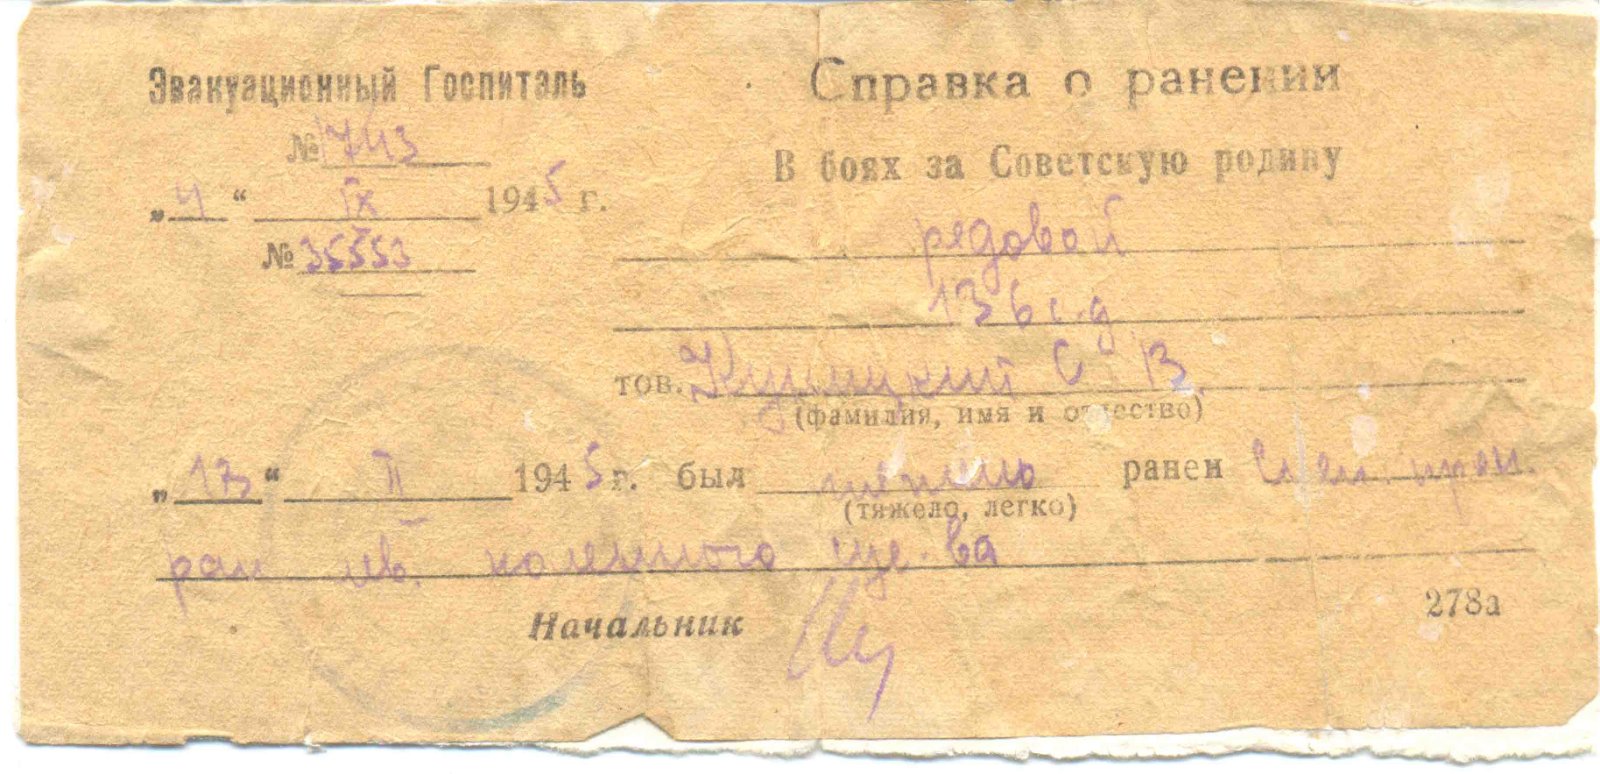 Эвакуационный Госпиталь
№ 1743
„4“ IX 1945 г.
№ 35553
Справка о ранении
В боях за Советскую родину
рядовой
136 с.д
тов. С В.
(фамилия, имя и отчество)
„13“ II 1945 г. был тяжело ранен
(тяжело, легко)
ран лев. коленного
Начальник
278а